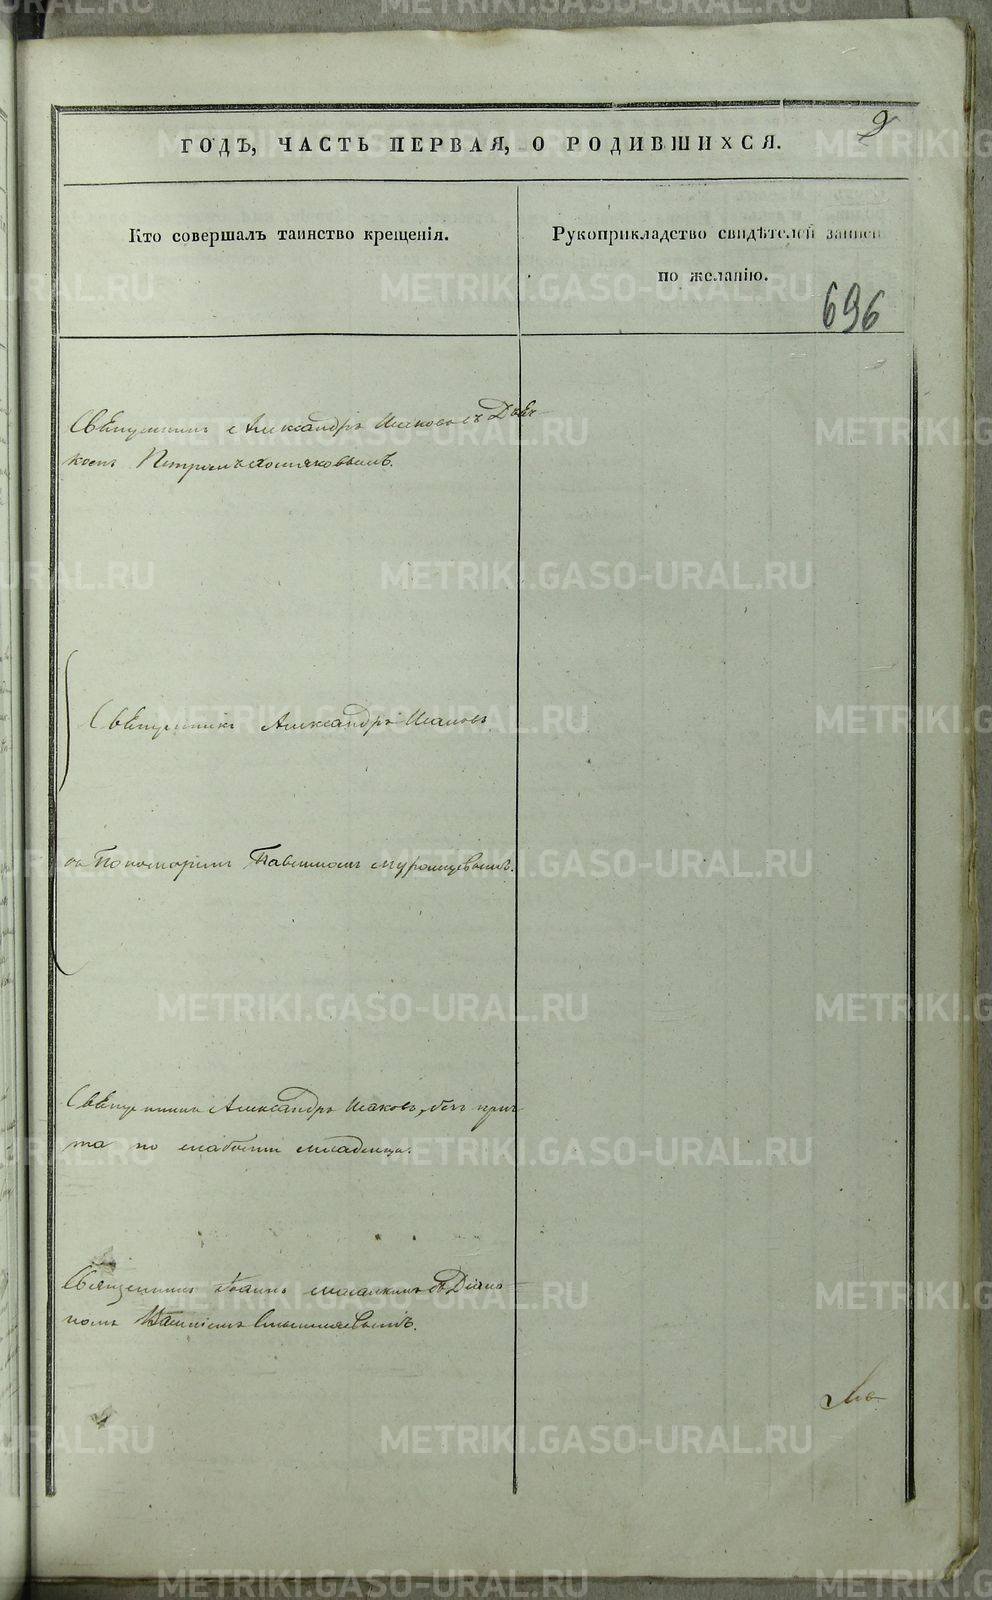 2
ГОДЪ, ЧАСТЬ ПЕРВАЯ, О РОДИВШИХСЯ.
Кто совершалъ таинство крещенія.
Рукоприкладство свидѣтелей записи
по желанію.
696
Священникъ Александръ Исаковъ съ
Петромъ Хомяковымъ.
Священникъ Александръ Исаковъ
съ Пономаремъ Павлиномъ Муромцевымъ.
Священникъ Александръ Исаковъ, безъ прич-
та по слабости младенца.
Священникъ Іоаннъ съ Діако-
номъ
METRIKI.GASO-URAL.RU